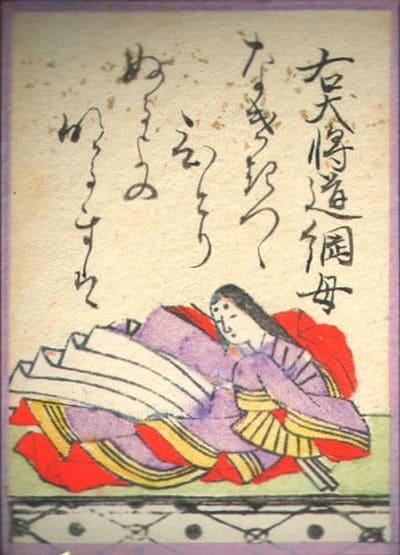 右大将道綱母
なげきつゝ
ひとり
ぬるよの
明るまは